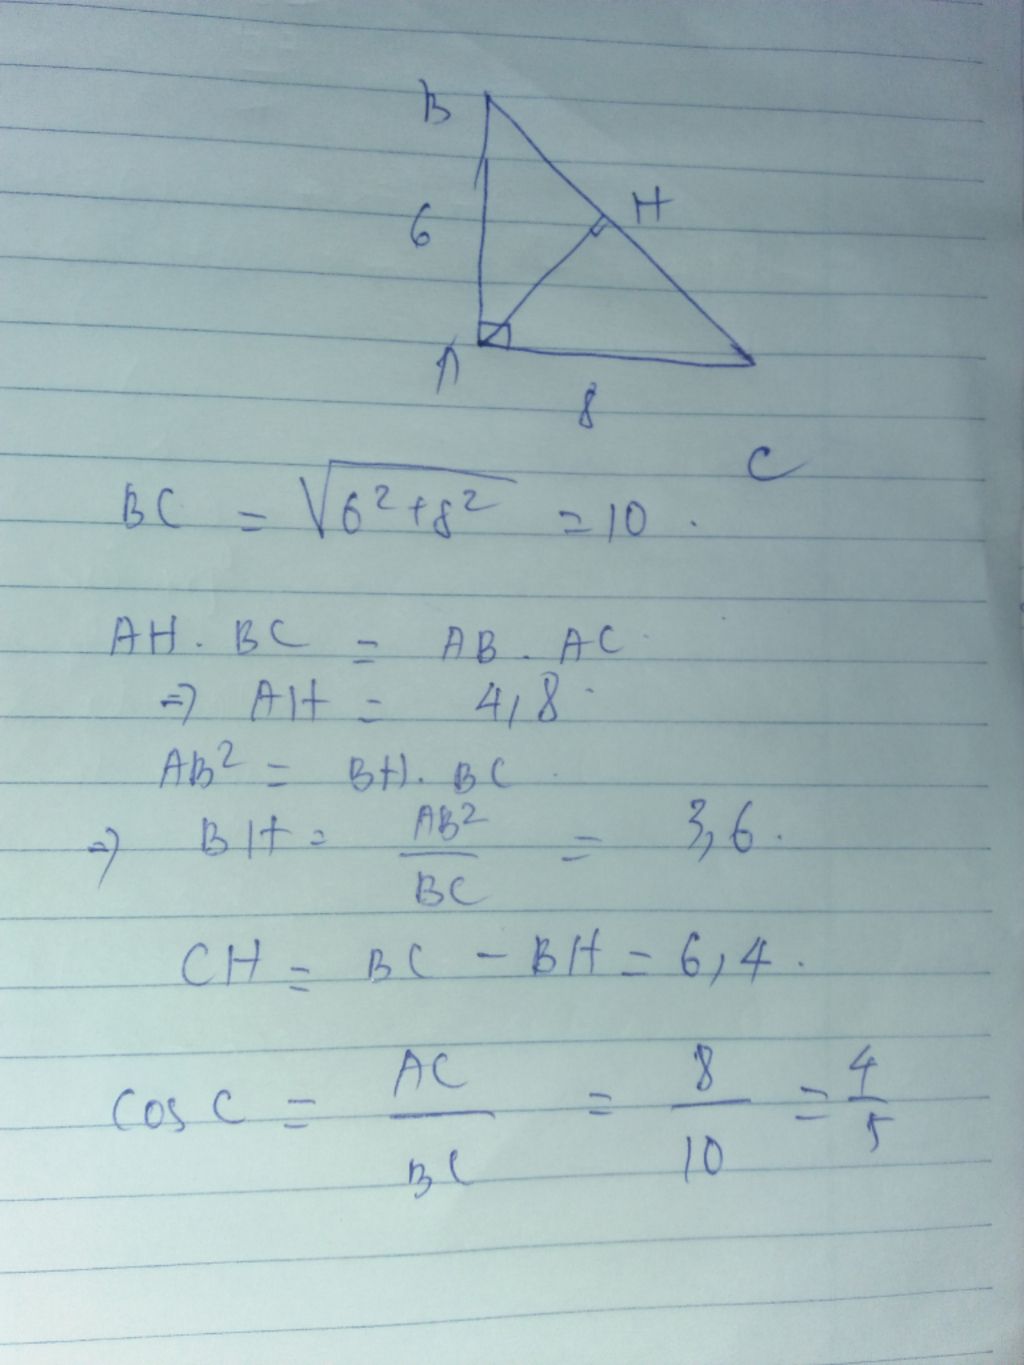 B
H
6
A
8
C
BC = √(6²+8²) = 10.
AH. BC = AB. AC.
=> AH = 4,8.
AB² = BH. BC.
=> BH = AB²/BC = 3,6.
CH = BC - BH = 6,4.
Cos C = AC/BC = 8/10 = 4/5